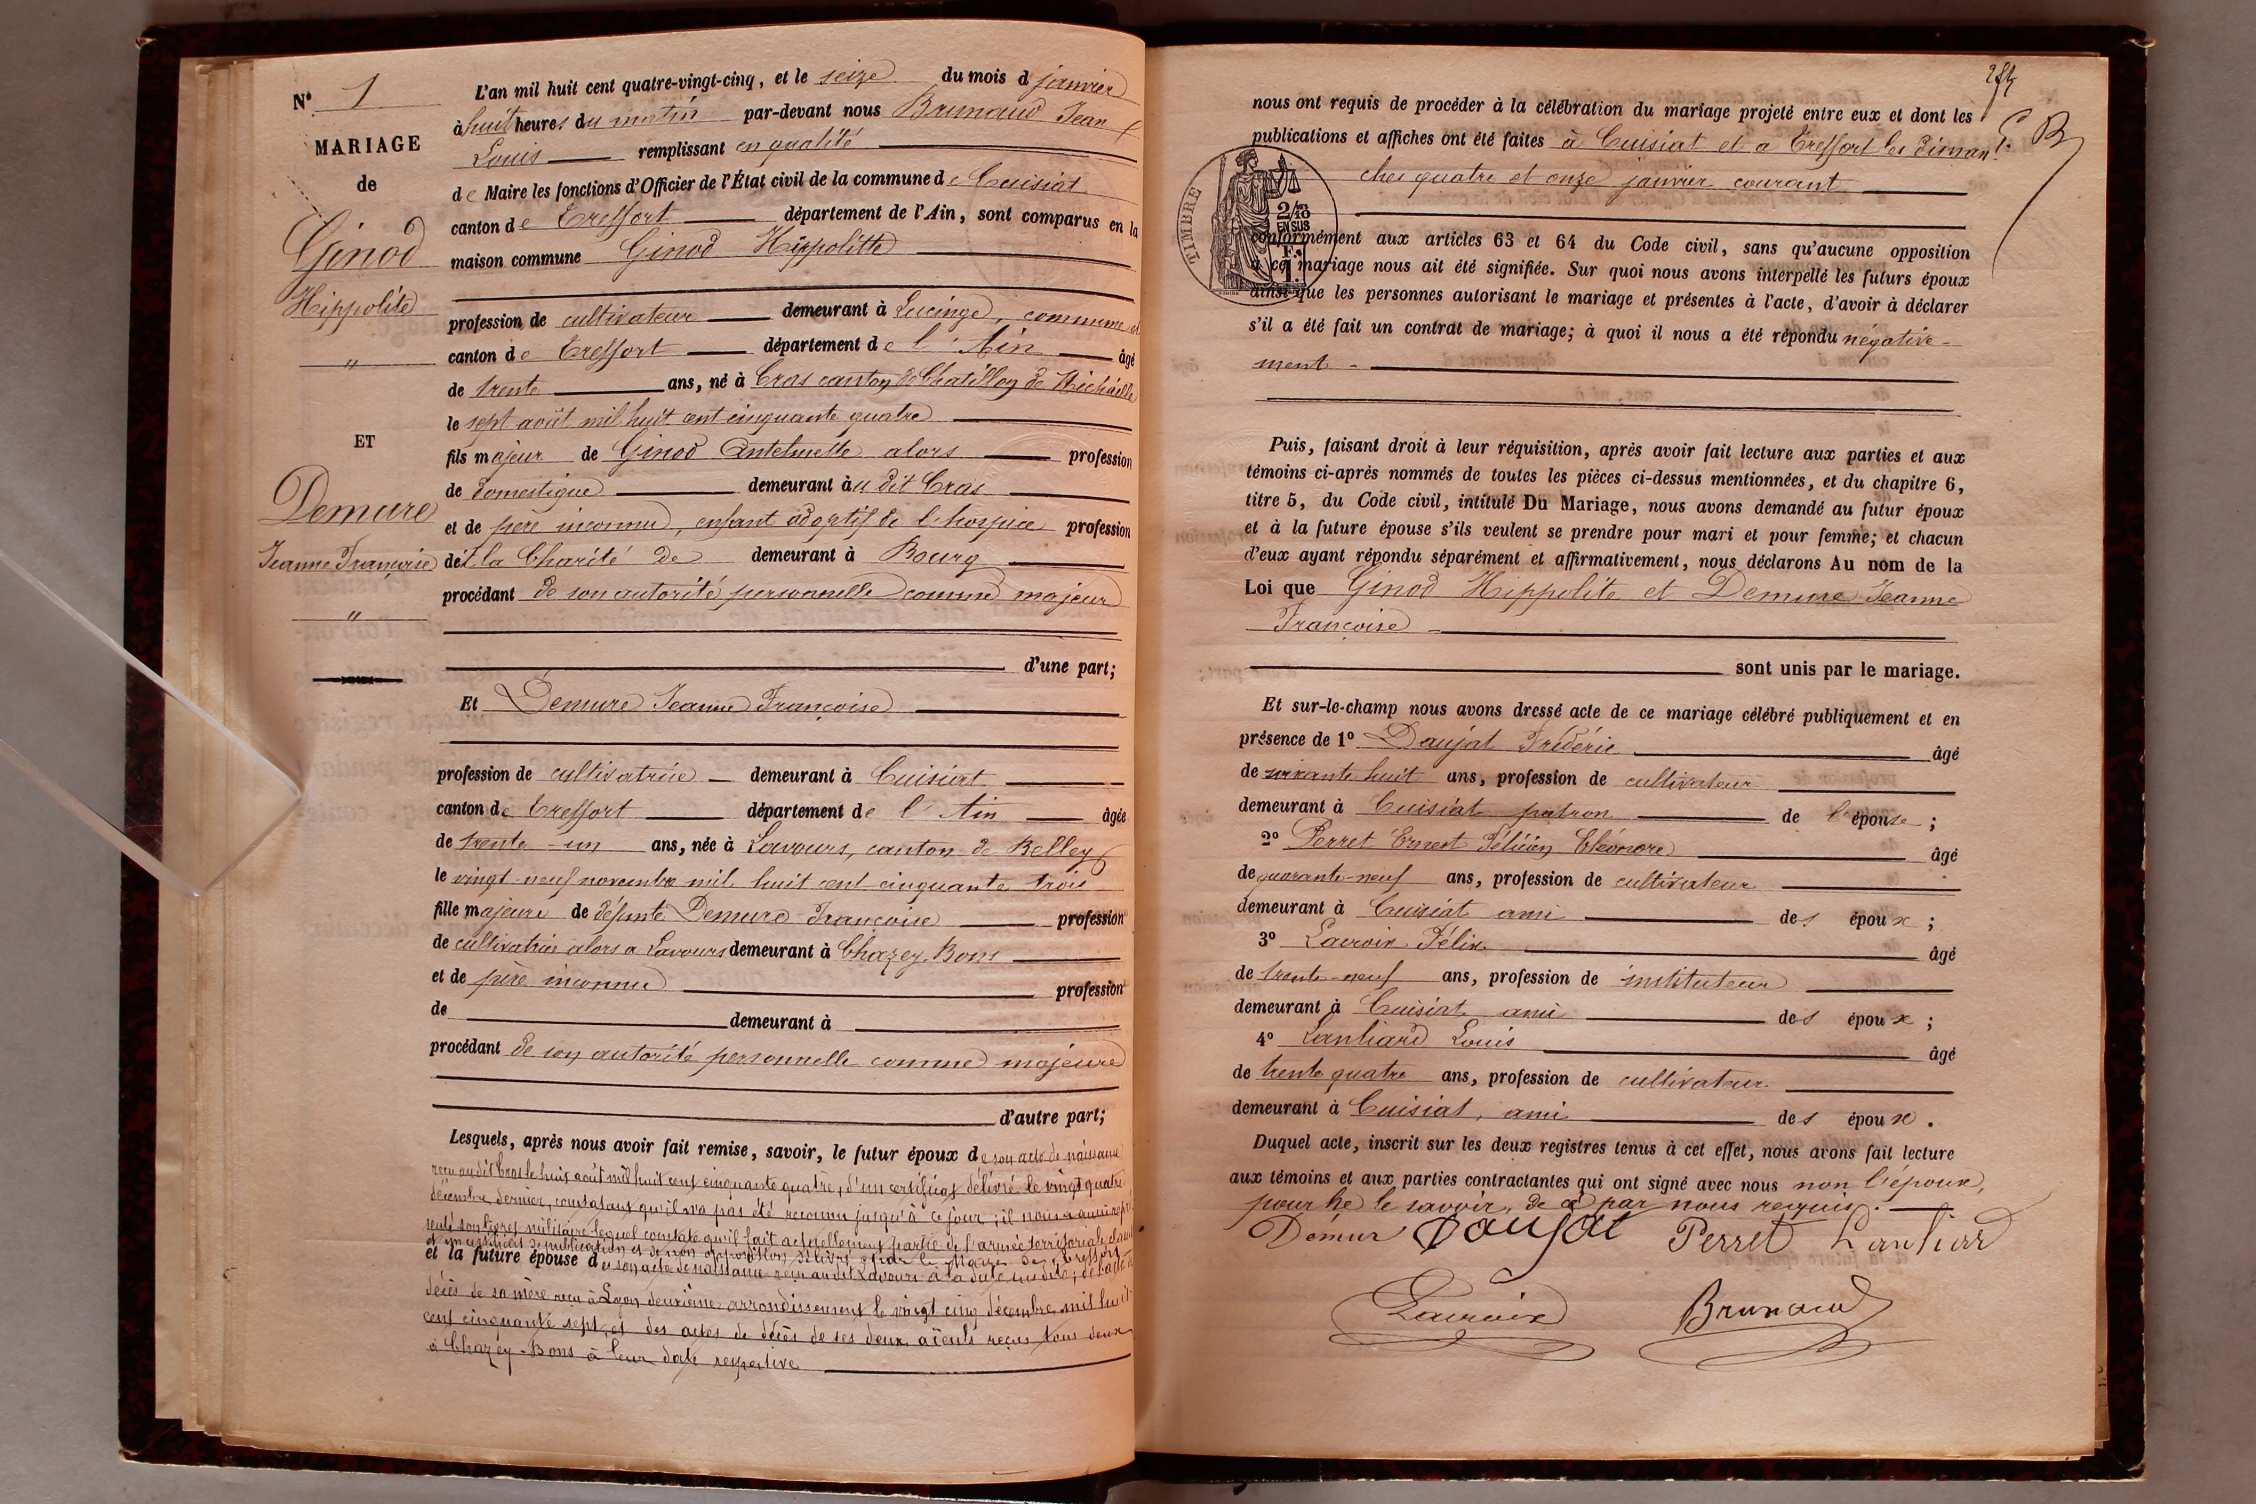 N° 1
MARIAGE
de
Ginod
Hippolite
"
ET
Demure
Jeanne Françoise
"
L'an mil huit cent quatre-vingt-cinq, et le seize du mois d janvier
à huit heures du matin par-devant nous Brunaud Jean
Louis remplissant en qualité
de Maire les fonctions d'Officier de l'État civil de la commune de Cuisiat
canton de Treffort département de l'Ain, sont comparus en la
maison commune Ginod Hippolitte
profession de cultivateur demeurant à Lucinge, commune et
canton de Treffort département de l'Ain âgé
de trente ans, né à Cras canton de Chatillon de Michaille
le sept août mil huit cent cinquante quatre
fils majeur de Ginod Antelmette alors profession
de domestique demeurant au dit Cras
et de père inconnu, enfant adoptif de l'hospice profession
de la Charité de demeurant à Bourg
procédant de son autorité personnelle comme majeur
d'une part;
Et Demure Jeanne Françoise
profession de cultivatrice demeurant à Cuisiat
canton de Treffort département de l'Ain âgée
de trente-un ans, née à Lavours, canton de Belley
le vingt-neuf novembre mil huit cent cinquante trois
fille majeure de défunte Demure Françoise profession
de cultivatrice alors a Lavours demeurant à Chazey-Bons
et de père inconnu profession
de demeurant à
procédant de son autorité personnelle comme majeure
d'autre part;
Lesquels, après nous avoir fait remise, savoir, le futur époux de son acte de naissance
reçu au dit Cras le huit août mil huit cent cinquante quatre, d'un certificat délivré le vingt quatre
décembre dernier, constatant qu'il n'a pas été reconnu jusqu'à ce jour; il nous a aussi repré
senté son livret militaire lequel constate qu'il fait actuellement partie de l'armée territoriale
et un certificat de publication et de non opposition délivré par le Maire de Treffort
et la future épouse de son acte de naissance reçu au dit Lavours à la date susdite; de l'acte de
décès de sa mère reçu à Lyon deuxième arrondissement le vingt cinq décembre mil huit
cent cinquante sept, et des actes de décès de ses deux aïeuls reçus tous deux
à Chazey-Bons à leur date respective
nous ont requis de procéder à la célébration du mariage projeté entre eux et dont les
publications et affiches ont été faites à Cuisiat et a Treffort les diman
ches quatre et onze janvier courant
B
TIMBRE
2/10
EN SUS
1 F.
conformément aux articles 63 et 64 du Code civil, sans qu'aucune opposition
à ce mariage nous ait été signifiée. Sur quoi nous avons interpellé les futurs époux
ainsi que les personnes autorisant le mariage et présentes à l'acte, d'avoir à déclarer
s'il a été fait un contrat de mariage; à quoi il nous a été répondu négative-
ment
Puis, faisant droit à leur réquisition, après avoir fait lecture aux parties et aux
témoins ci-après nommés de toutes les pièces ci-dessus mentionnées, et du chapitre 6,
titre 5, du Code civil, intitulé Du Mariage, nous avons demandé au futur époux
et à la future épouse s'ils veulent se prendre pour mari et pour femme; et chacun
d'eux ayant répondu séparément et affirmativement, nous déclarons Au nom de la
Loi que Ginod Hippolite et Demure Jeanne
Françoise
sont unis par le mariage.
Et sur-le-champ nous avons dressé acte de ce mariage célébré publiquement et en
présence de 1° Daujat Frédéric âgé
de soixante huit ans, profession de cultivateur
demeurant à Cuisiat patron de l'épouse;
2° Perret Ernest Félicien Eléonore âgé
de quarante-neuf ans, profession de cultivateur
demeurant à Cuisiat ami des époux;
3° Lacroix Félix âgé
de trente-neuf ans, profession de instituteur
demeurant à Cuisiat ami des époux;
4° Lanliard Louis âgé
de trente quatre ans, profession de cultivateur
demeurant à Cuisiat, ami des époux.
Duquel acte, inscrit sur les deux registres tenus à cet effet, nous avons fait lecture
aux témoins et aux parties contractantes qui ont signé avec nous non l'époux,
pour ne le savoir, de ce par nous requis.
Démur Daujat Perret Lanliard
Lacroix Brunaud